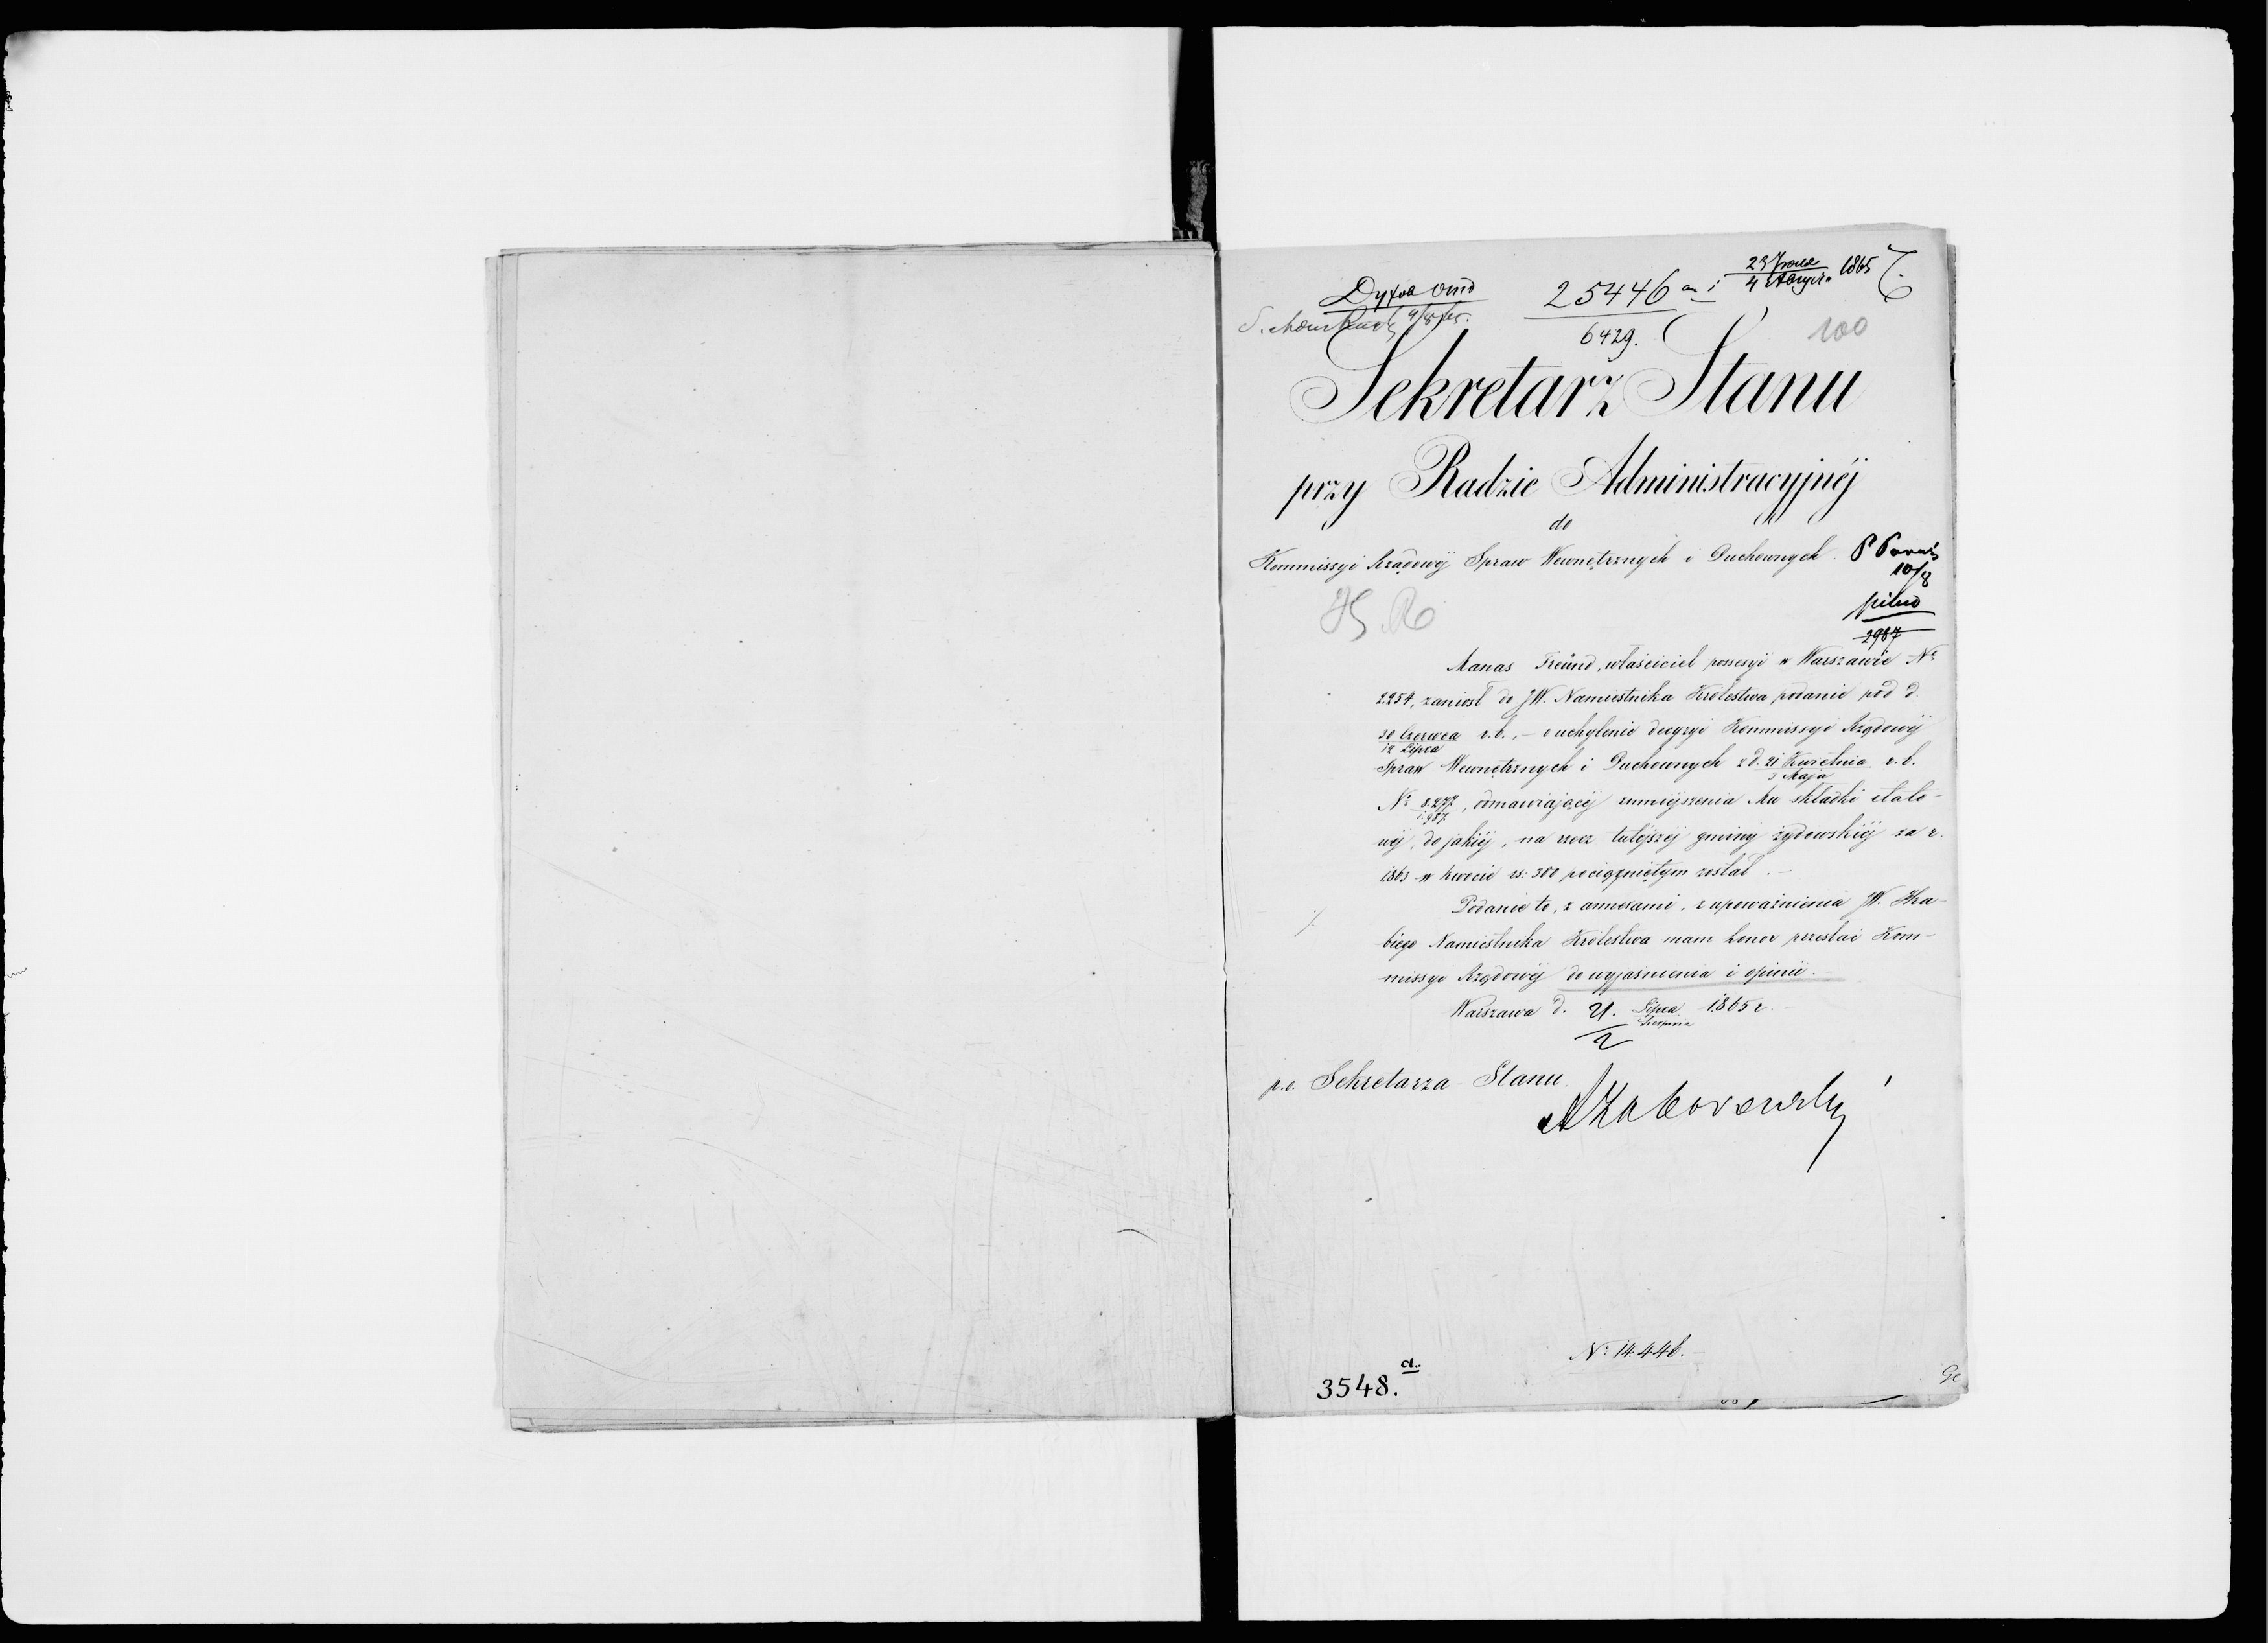 Духов Отд
25446 23 Июля
4 Августа 1865
6429.
100
Sekretarz Stanu
przy Radzie Administracyjnéj
do
Kommissyi Rządowéj Spraw Wewnętrznych i Duchownych.
10/8
pilno
2987
Manas Freünd, właściciel possesyi w Warszawie Nr
2254, zaniosł do JW. Namiestnika Królestwa podanie pod d.
30 Czerwca
12 Lipca r.b., – o uchylenie decyzyi Kommissyi Rządowéj
Spraw Wewnętrznych i Duchownych z d. 21 Kwietnia
3 Maja r.b.
Nr 8.277
1.987, odmawiającéj zmniejszenia Mu składki etato-
wéj, do jakiéj, na rzecz tutejszéj gminy żydowskiéj za r.
1863 w kwocie rs: 380 pociągniętym został. –
Podanie to, z annexami, z upoważnienia JW. Hra-
biego Namiestnika Królestwa mam honor przesłać Kom-
missyi Rządowéj do wyjaśnienia i opinii. –
Warszawa d. 21. Lipca
2 Sierpnia 1865 r. –
p.o. Sekretarza Stanu
AZaborowski
Nr 14.446. –
3548.a.